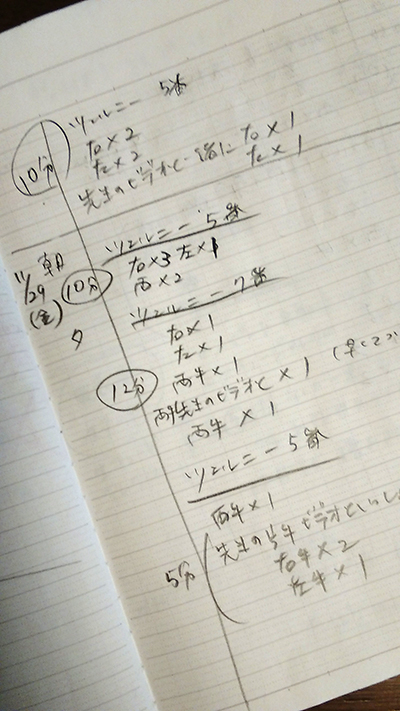 ツェルニー 5番
10分
右×2
左×2
先生のビデオと一緒に 右×1
左×1
ツェルニー 5番
朝
11/29
(金)
10分
右×3 左×1
両×2
ツェルニー 7番
夕
右×1
左×1
12分
両手×1
両手先生のビデオと×1
両手×1
ツェルニー 5番
両手×1
5分
先生の ビデオといっしょ
右手×2
左手×1